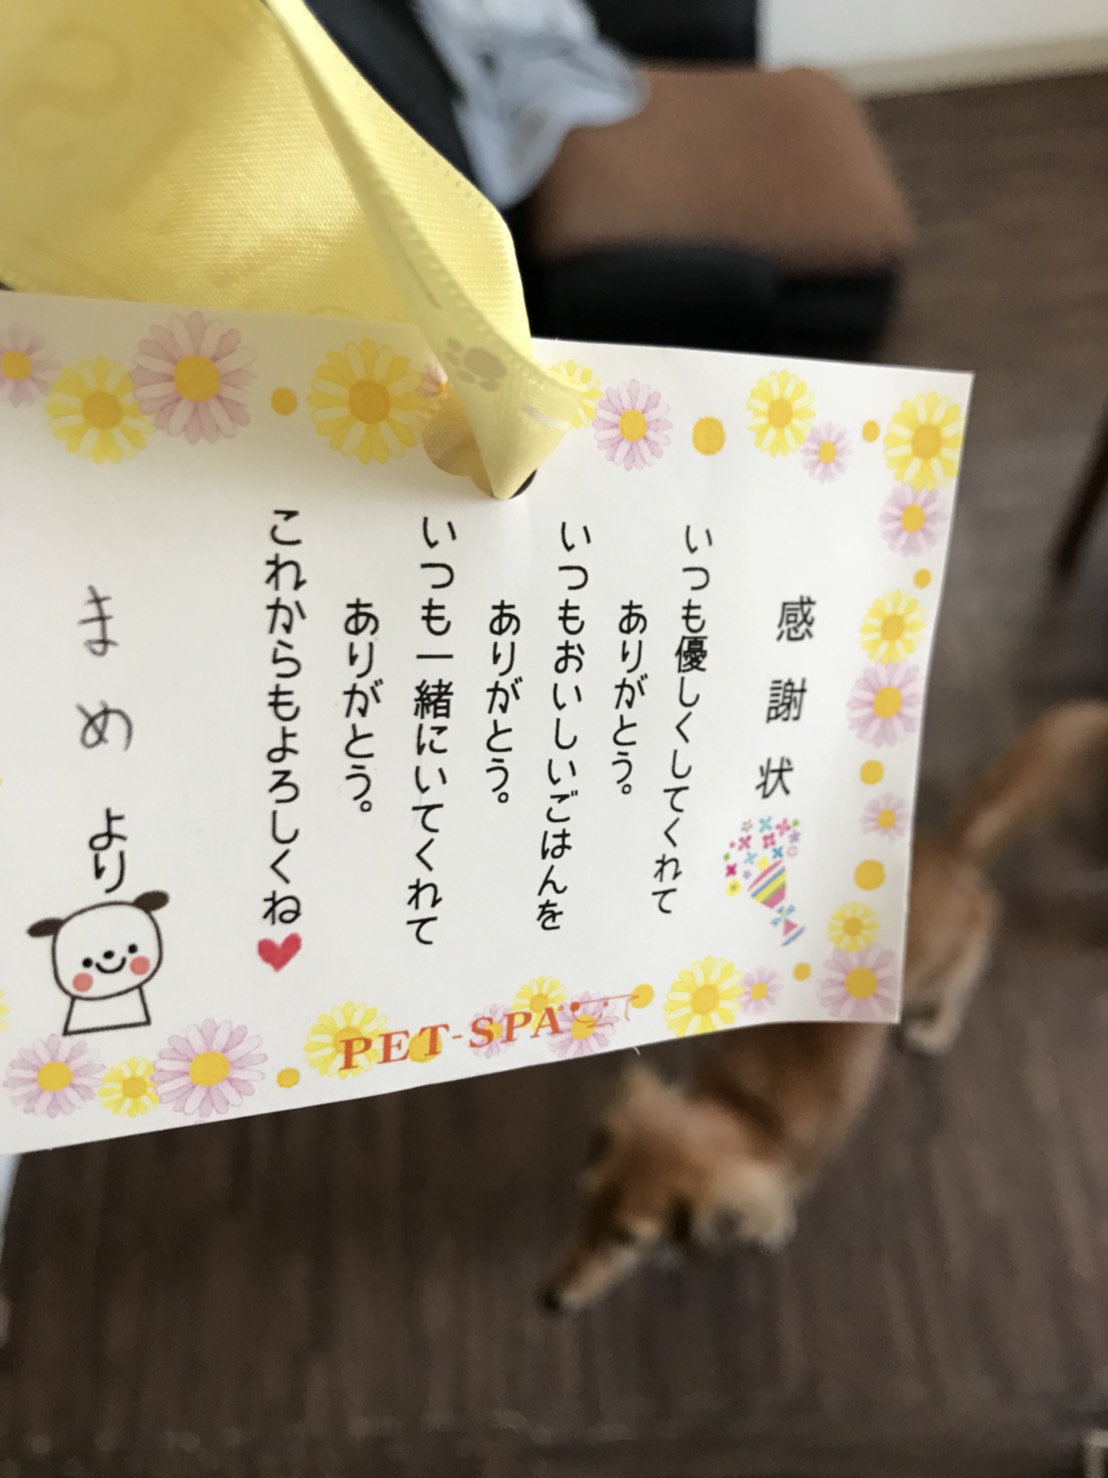 感謝状
いつも優しくしてくれて
ありがとう。
いつもおいしいごはんを
ありがとう。
いつも一緒にいてくれて
ありがとう。
これからもよろしくね
まめより
PET-SPA